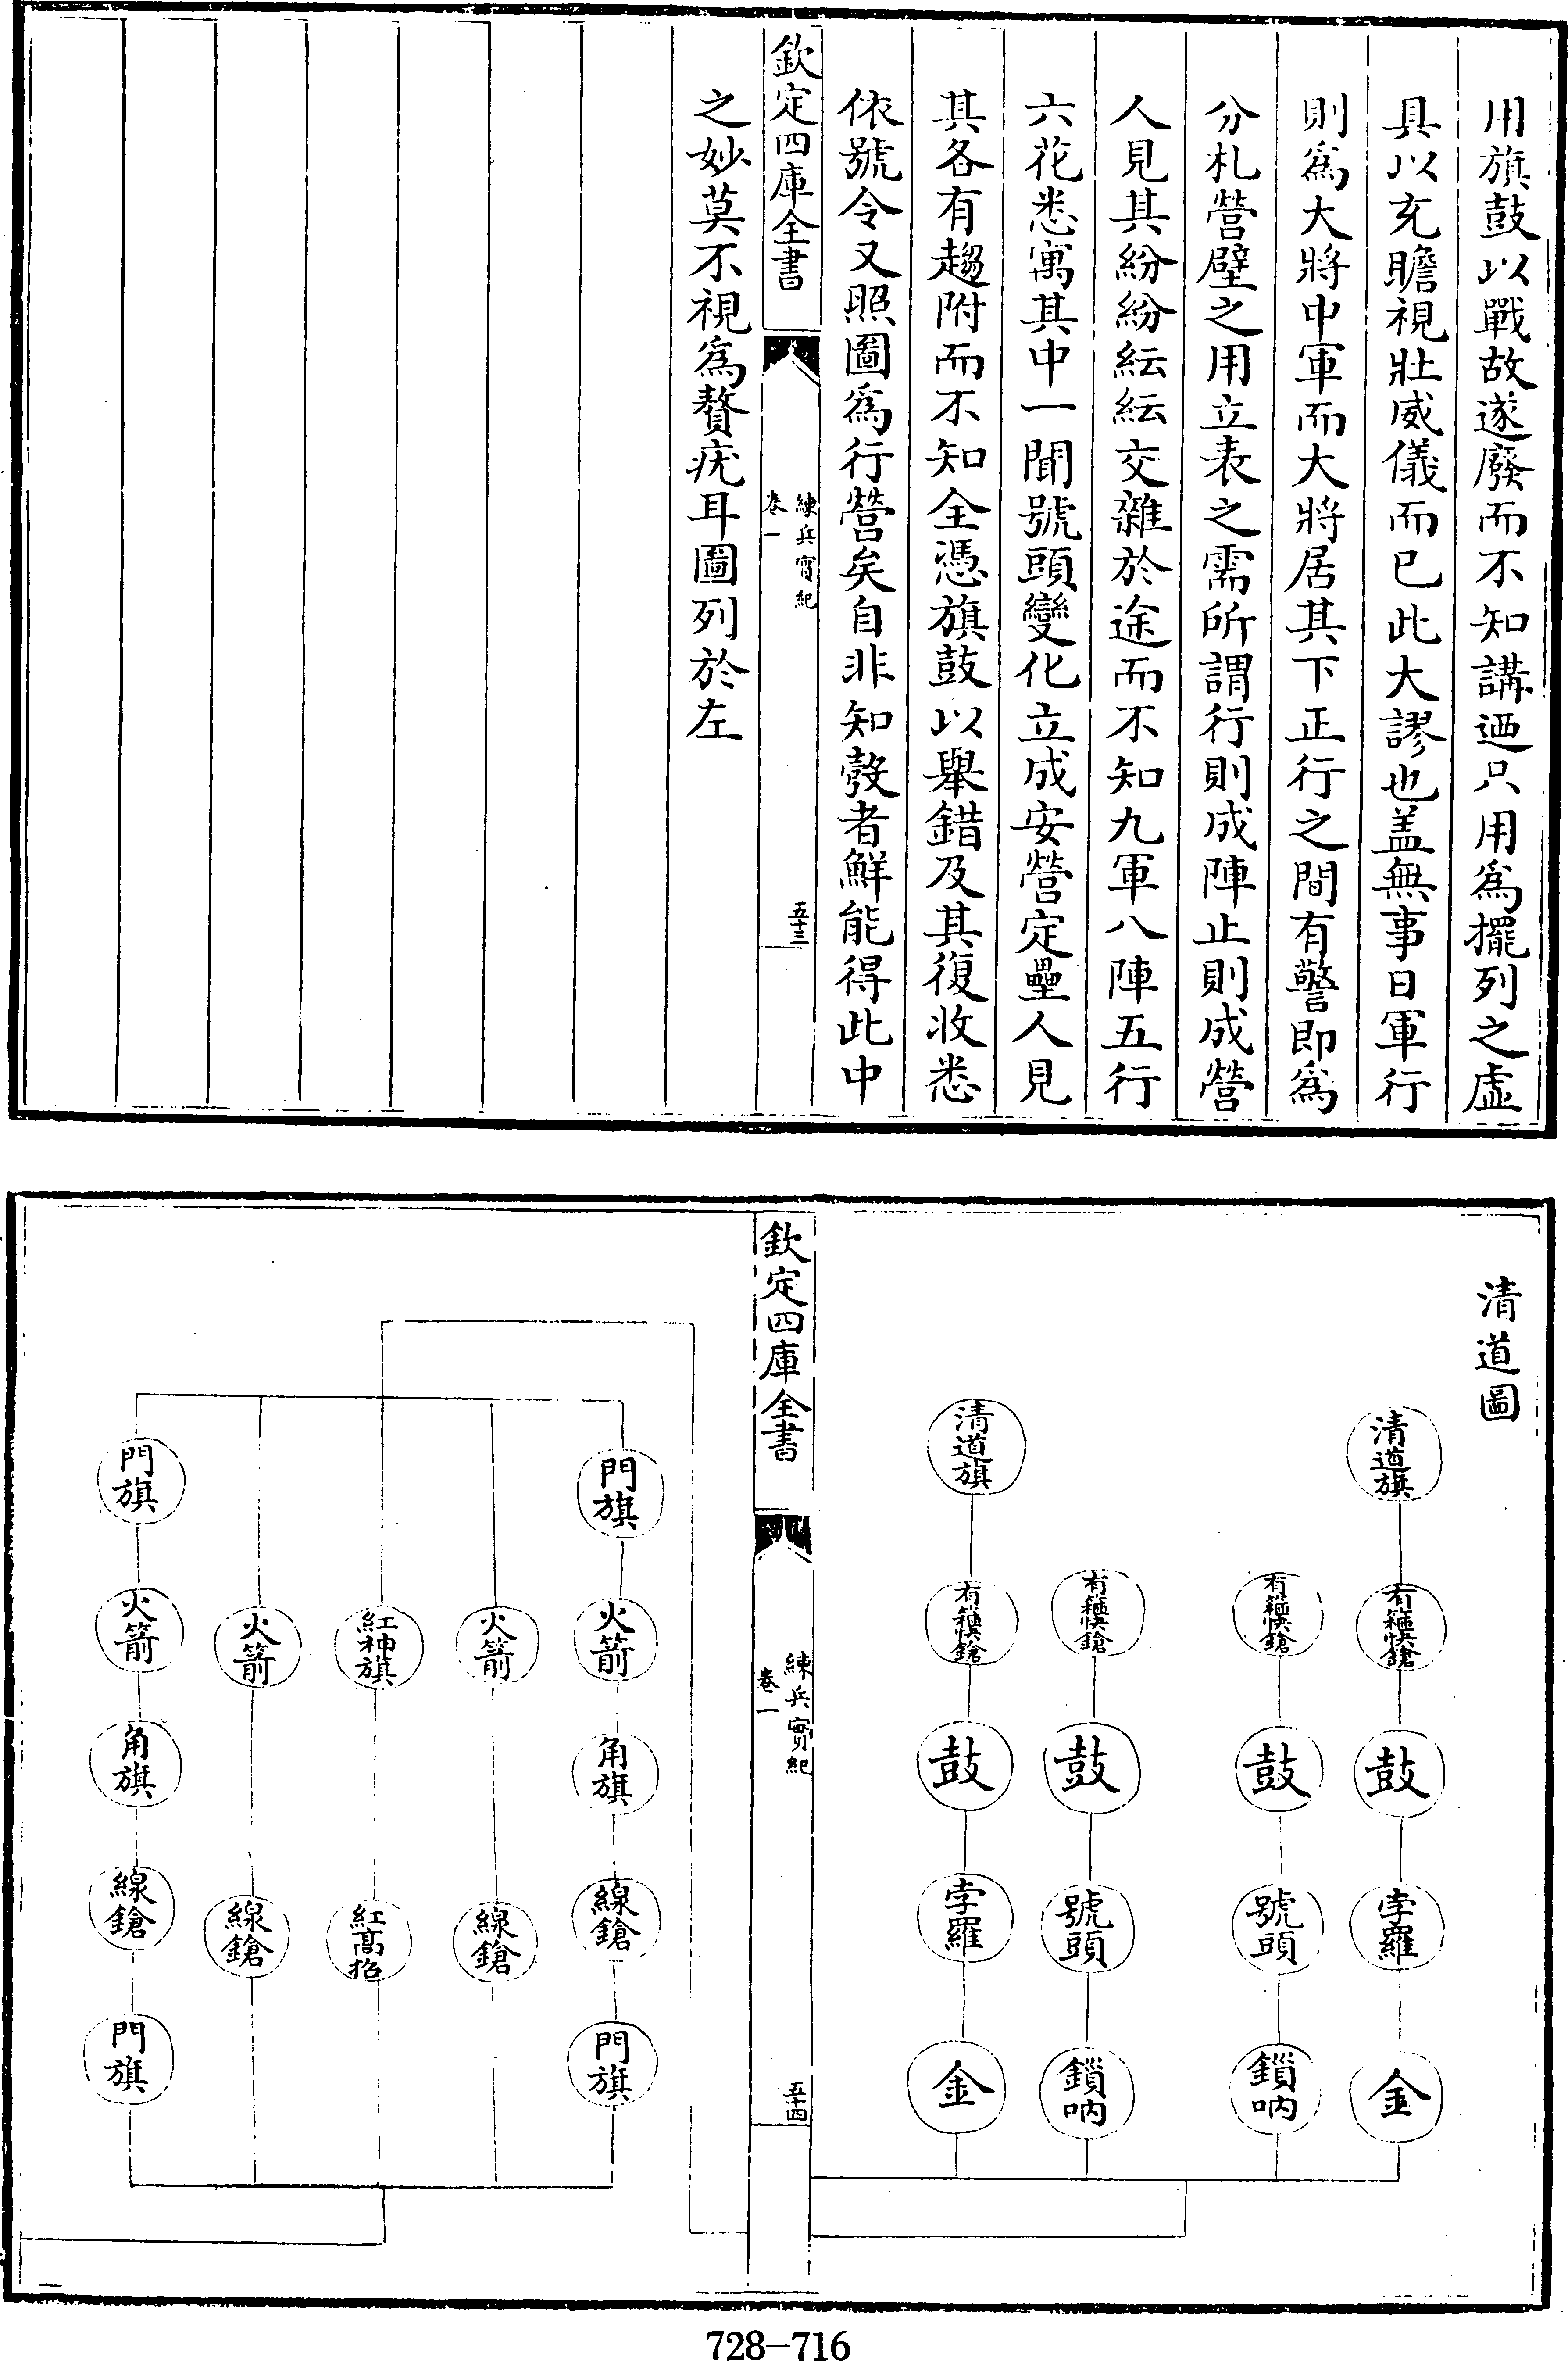 用旗鼓以戰故遂廢而不知講迺只用為擺列之虛
具以充瞻視壯威儀而已此大謬也盖無事日軍行
則為大將中軍而大將居其下正行之間有警即為
分札營壁之用立表之需所謂行則成陣止則成營
人見其紛紛紜紜交雜於途而不知九軍八陣五行
六花悉寓其中一聞號頭變化立成安營定壘人見
其各有趨附而不知全憑旗鼓以舉錯及其復收悉
依號令又照圖為行營矣自非知彀者鮮能得此中
欽定四庫全書
練兵實紀
卷一
五十三
之妙莫不視為贅疣耳圖列於左
清道圖
清道旗
有籠快鎗
鼓
孛羅
金
有籠快鎗
鼓
號頭
鎖吶
有籠快鎗
鼓
號頭
鎖吶
清道旗
有籠快鎗
鼓
孛羅
金
欽定四庫全書
練兵實紀
卷一
五十四
門旗
火箭
角旗
線鎗
門旗
火箭
線鎗
紅神旗
紅高招
火箭
線鎗
門旗
火箭
角旗
線鎗
門旗
728-716